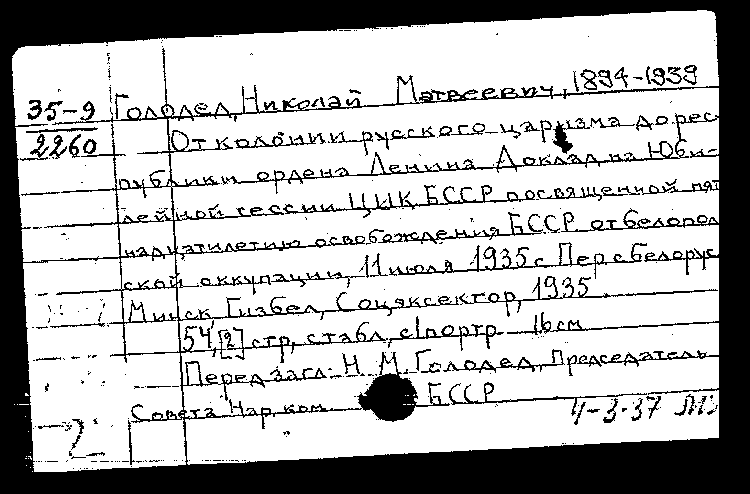 35-9
2260
Голодед, Николай Матвеевич, 1894-1939
От колонии русского царизма до рес-
публики ордена Ленина Доклад на Юби-
лейной сессии ЦИК БССР посвященной пят
надцатилетию освобождения БССР от белопол
ской оккупации, 11 июля 1935 г. Пер с Белорус
Минск Гизбел, Соцэксектор, 1935.
54, [2] стр, с табл, с 1 портр. 16 см
Перед загл: Н. М. Голодед, Председатель
Совета Нар. ком БССР
4-3-37
2